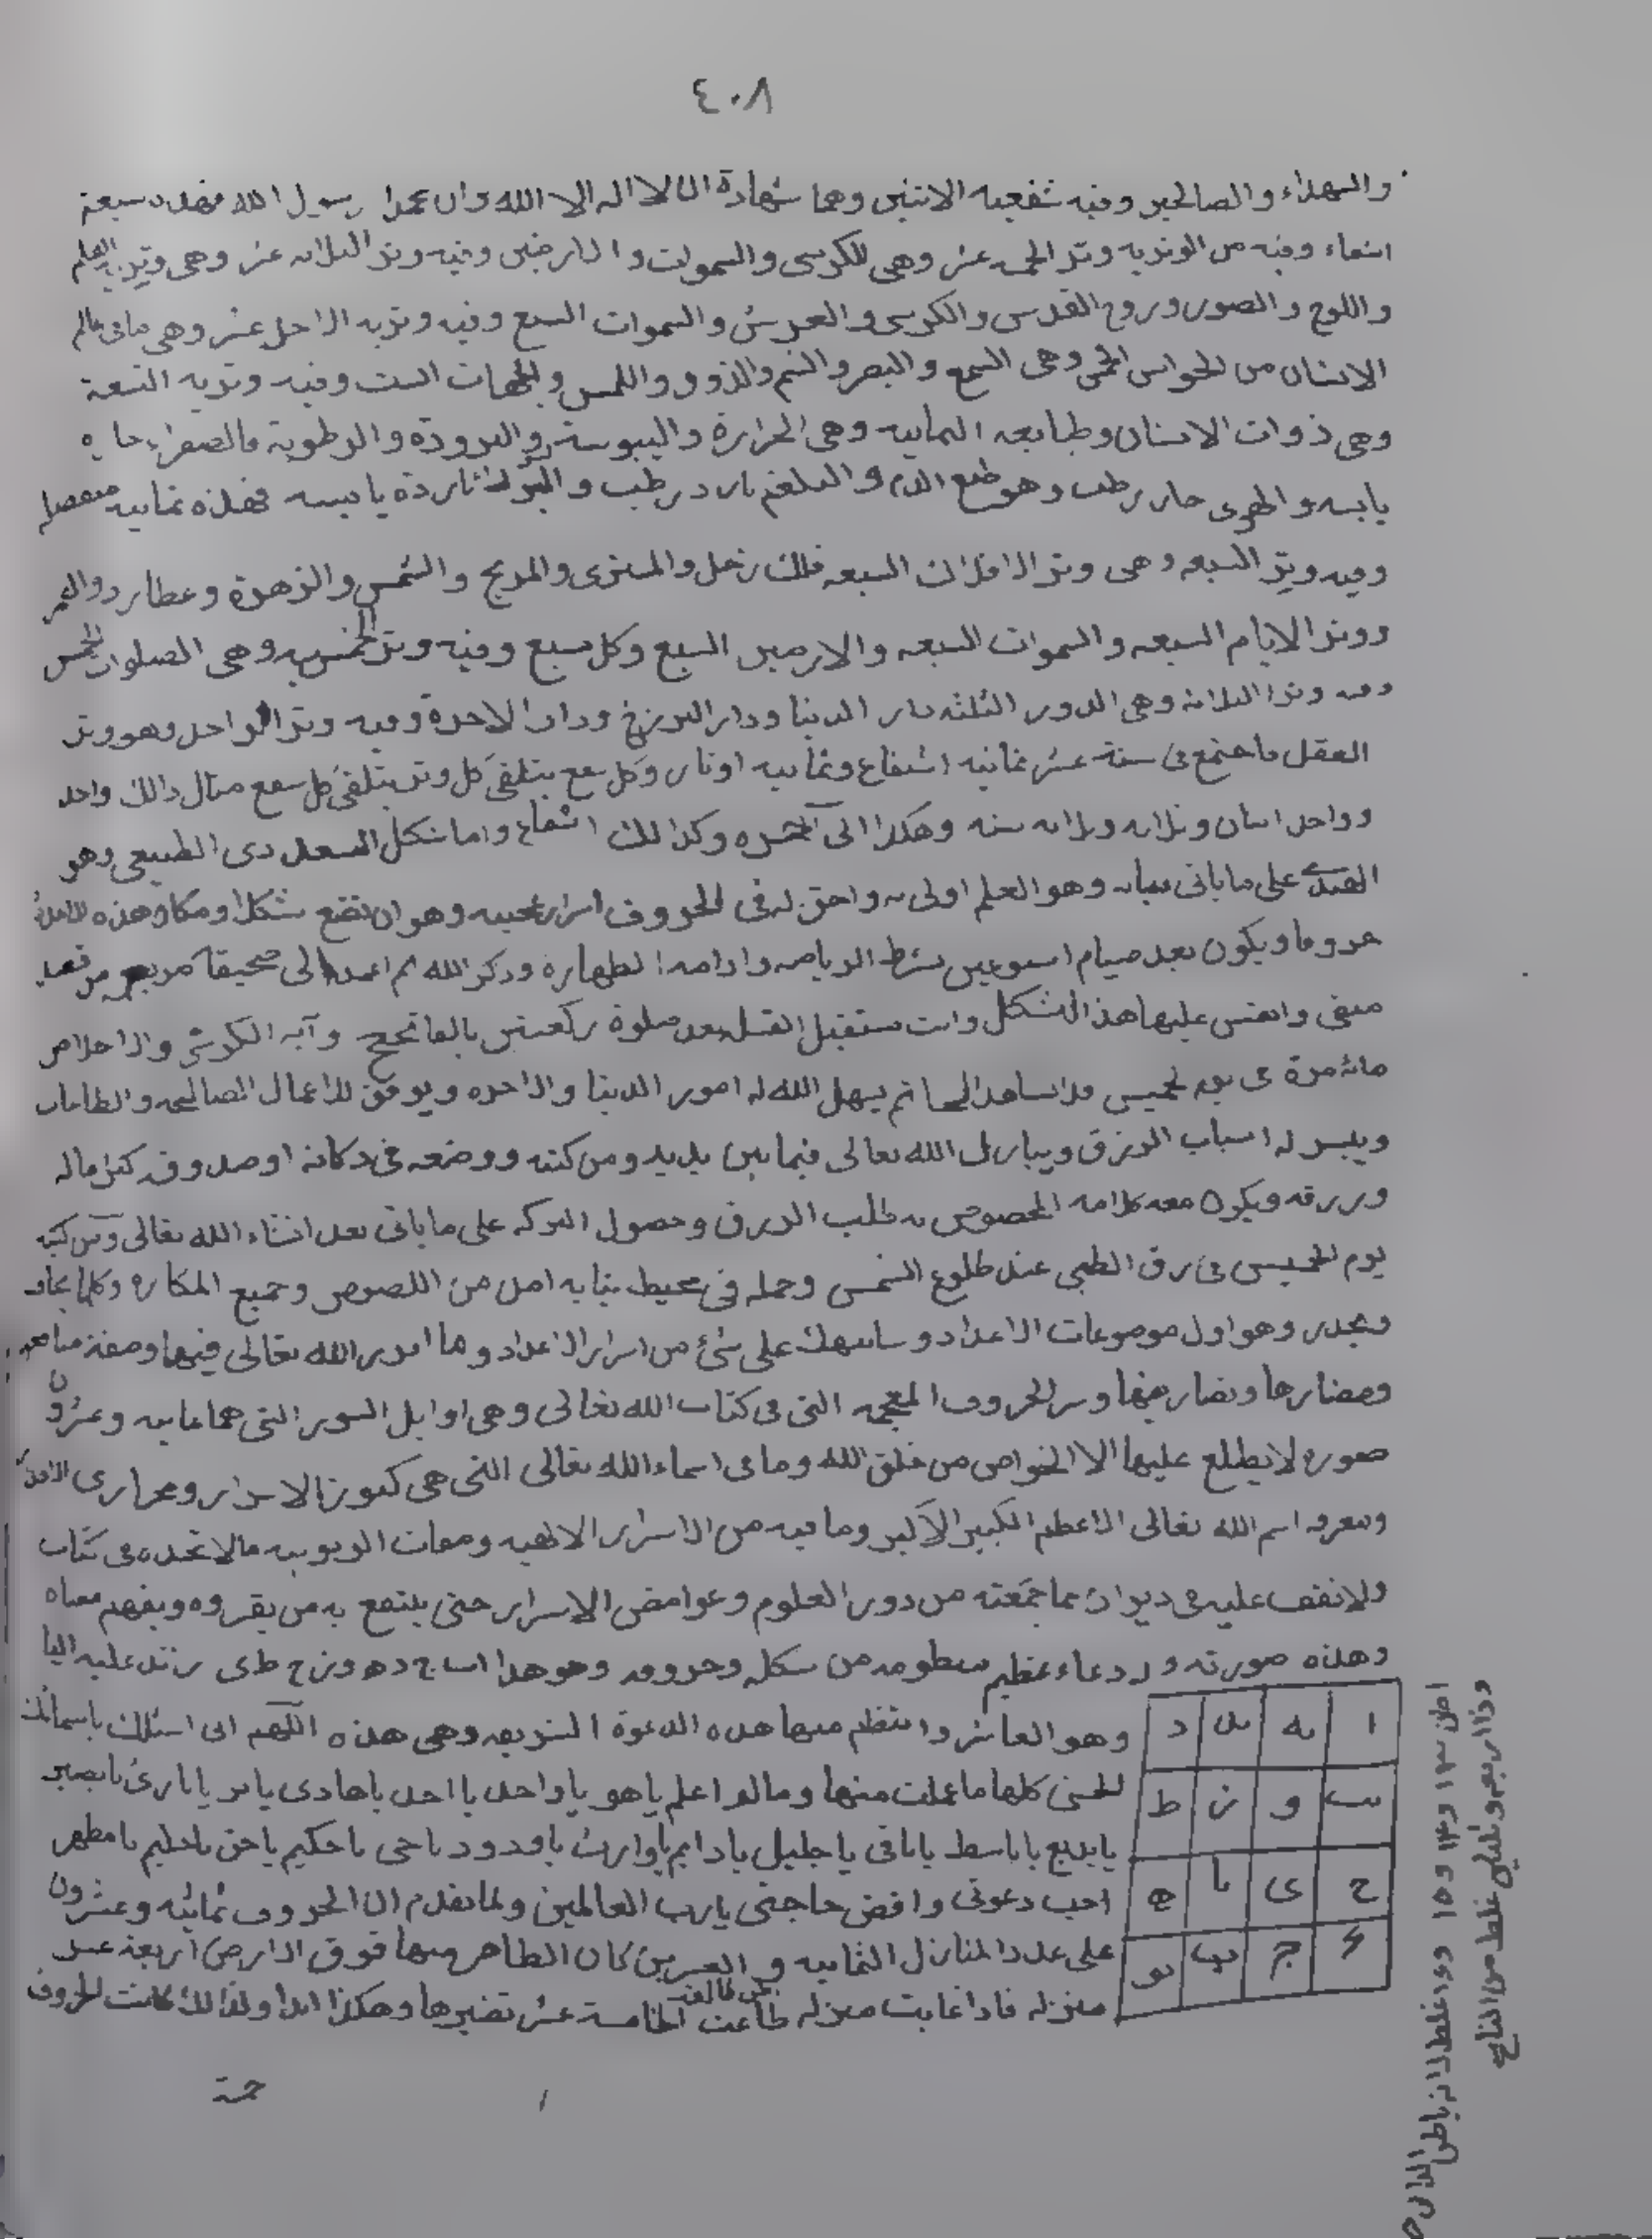 ٤٠٨
والشهداء والصالحين وفيه شفعيه الاثنين وهما شهادة ان لا اله الا الله وان محمدا رسول الله فهذه سبعة
اشفاع وفيه من الوتريه وتر الخمسه عشر وهى الكرسى والسموات والارضين وفيه وتر الثلاثه عشر وهى وتريه القلم
واللوح والصور وروح القدس والكرسى والعرش والسموات السبع وفيه وتريه الاحد عشر وهى مافى عالم
الانسان من الحواس الخمس وهى السمع والبصر والشم والذوق واللمس والجهات الست وفيه وتريه التسعة
وهى ذوات الانسان وطبايعه الثمانيه وهى الحرارة واليبوسة والبرودة والرطوبة فالصفراء حاره
يابسه والهوى حار رطب وهو طبع الدم والبلغم بارد رطب و باردة يابسه فهذه ثمانيه
وفيه وتر السبعه وهى وتر الافلاك السبعه فلك زحل والمشترى والمريخ والشمس والزهرة وعطارد والقمر
ووتر الايام السبعه والسموات السبعه والارضين السبع وكل سبع وفيه وتر الخمسيه وهى الصلوات الخمس
وفيه وتر الثلاثه وهى الدور الثلثه دار الدنيا ودار البرزخ ودار الاخرة وفيه وتر الواحد وهو وتر
العقل فاجتمع فى ستة عشر ثمانيه اشفاع وثمانيه اوتار وكل شفع يتلقى كل وتر يتلقى كل شفع مثال ذالك واحد
وواحد اثنان وثلاثه وثلاثه سته وهكذا الى وكذالك اشفاع واما شكل العددى الطبيعى وهو
الهندى على ماياتى بيانه وهو العلم اولى به واحق له فى الحروف اسرار عجيبه وهو ان تضع شكلا ومكان هذه الاعداد
حروفا ويكون بعد صيام اسبوعين بشرط الرياضه وادامه الطهارة وذكر الله ثم اعمد الى صحيفة مربعه من قصدير
منقى وانقش عليها هذا الشكل وانت مستقبل القبله بعد صلوة ركعتين بالفاتحه وآيه الكرسى والاخلاص
مائة مرة فى يوم خميس يسهل الله له امور الدنيا والاخره ويوفق للاعمال الصالحه والطاعات
وييسر له اسباب الرزق ويبارك الله تعالى فيما بين يديه ومن كتبه ووضعه فى دكانه او صندوق كثر ماله
ورزقه ويكون معه كلامه المخصوص به طلب الرزق وحصول البركه على ماياتى بعد انشاء الله تعالى ومن كتبه
يوم الخميس فى رق الظبى عند طلوع الشمس وحمله فى محيط ثيابه امن من اللصوص وجميع المكاره وكلما يخاف
ويحذر وهو اول موضوعات الاعداد وسانبهك على شئ من اسرار الاعداد وما اودع الله تعالى فيها وصفة منافعها
ومضارها وتصاريفها وسر الحروف المعجمه التى فى كتاب الله تعالى وهى اوايل السور التى هما ثمانيه وعشرون
صوره لايطلع عليها الا الخواص من خلق الله وما فى اسماء الله تعالى التى هى كنوز الاسرار ومجارى
ومعرفه اسم الله تعالى الاعظم الكبير الاكبر وما فيه من الاسرار الالهيه وصفات الربوبيه مالا تجده فى كتاب
ولا تقف عليه فى ديوان مما جمعته من دور العلوم وغوامض الاسرار حتى ينتفع به من يقروه ويفهم معناه
وهذه صورته وله دعاء عظيم منظومه من شكله وحروفه وهو هذا ا ب ج د ه و ز ح ط ى زد عليه اليا
وهو العاشر وانتظم منها هذه الدعوة الشريفه وهى هذه اللهم انى اسئلك باسمائك
الحسنى كلها ما علمت منها ومالم اعلم ياهو ياواحد يااحد ياهادى يابر يابارئ يابصير
يابديع ياباسط ياباقى ياجليل يادايم ياوارث ياودود ياحى ياحكيم ياحق ياحليم يامطهر
اجب دعوتى واقض حاجتى يارب العالمين ولما تقدم ان الحروف ثمانيه وعشرون
على عدد المنازل الثمانيه والعشرين كان الظاهر منها فوق الارض اربعة عشر
منزله فاذا غابت منزله طلعت الخامسة عشر نضيرها وهكذا ابدا ولذالك كانت الحروف
خمسة
ا يه يد د
ب و ز ط
ح ى يا ه
ج يب يو
وذا اربعه وثلثين غلط من الناسخ